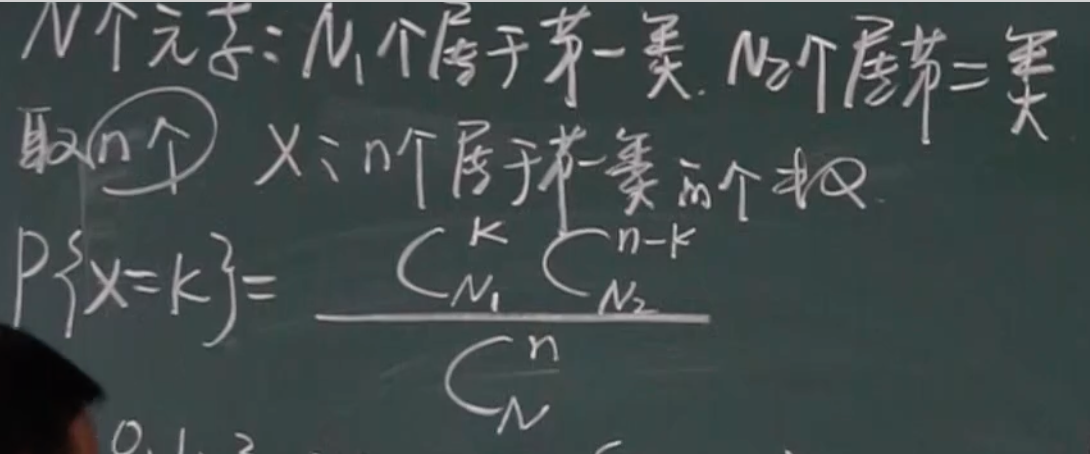 N个元素: N₁个属于第一类. N₂个属第二类
取n个 X: n个属于第一类的个数.
P{X=K}= \frac{C_{N_1}^{K} C_{N_2}^{n-K}}{C_N^n}
0, 1, 2